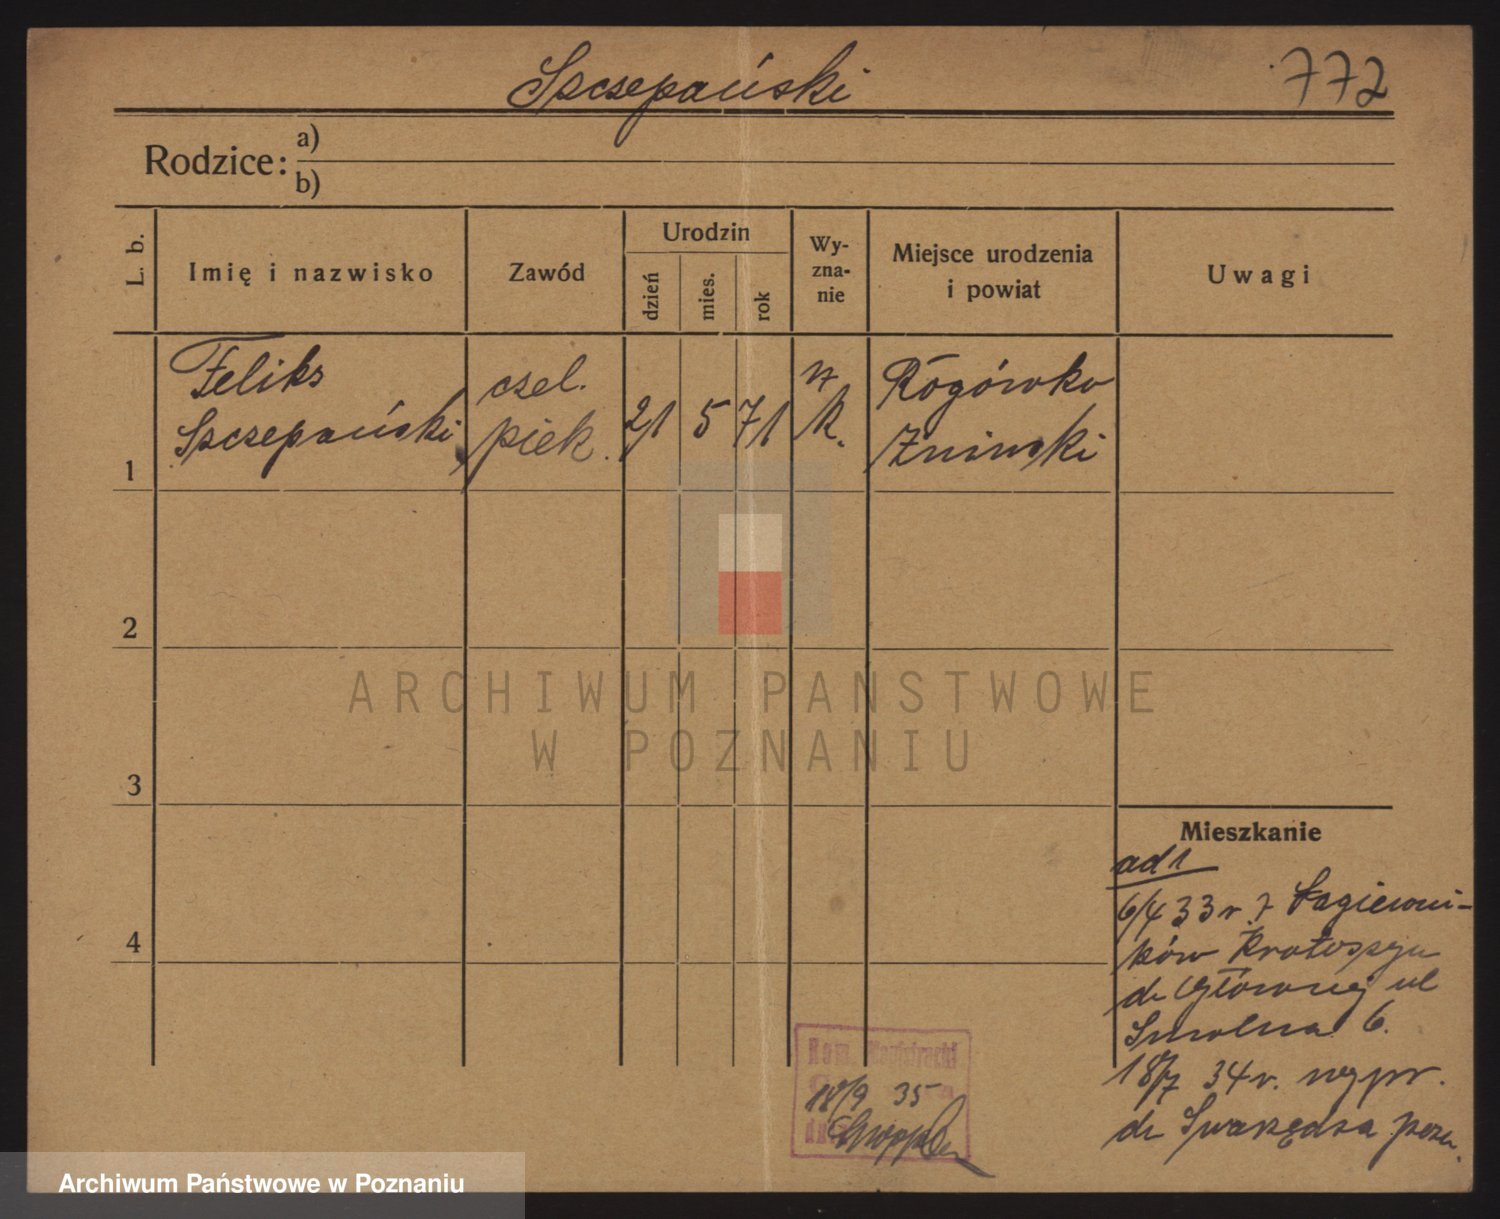 Szczepański
772
Rodzice: a)
b)
L. b.
Imię i nazwisko
Zawód
Urodzin
dzień
mies.
rok
Wy-
zna-
nie
Miejsce urodzenia
i powiat
Uwagi
1
Feliks
Szczepański
czel.
piek.
21
5
71
rz
k.
Rogówko
Żniński
2
3
4
ARCHIWUM PAŃSTWOWE
W POZNANIU
Mieszkanie
ad 1
6/4 33 r. z Łagiewni-
ków Krotoszyn
do Głównej ul
Smolna 6.
18/7 34 r. wypr.
do Swarzędza pozn.
Kom. Magistracki
18/9 35
Archiwum Państwowe w Poznaniu